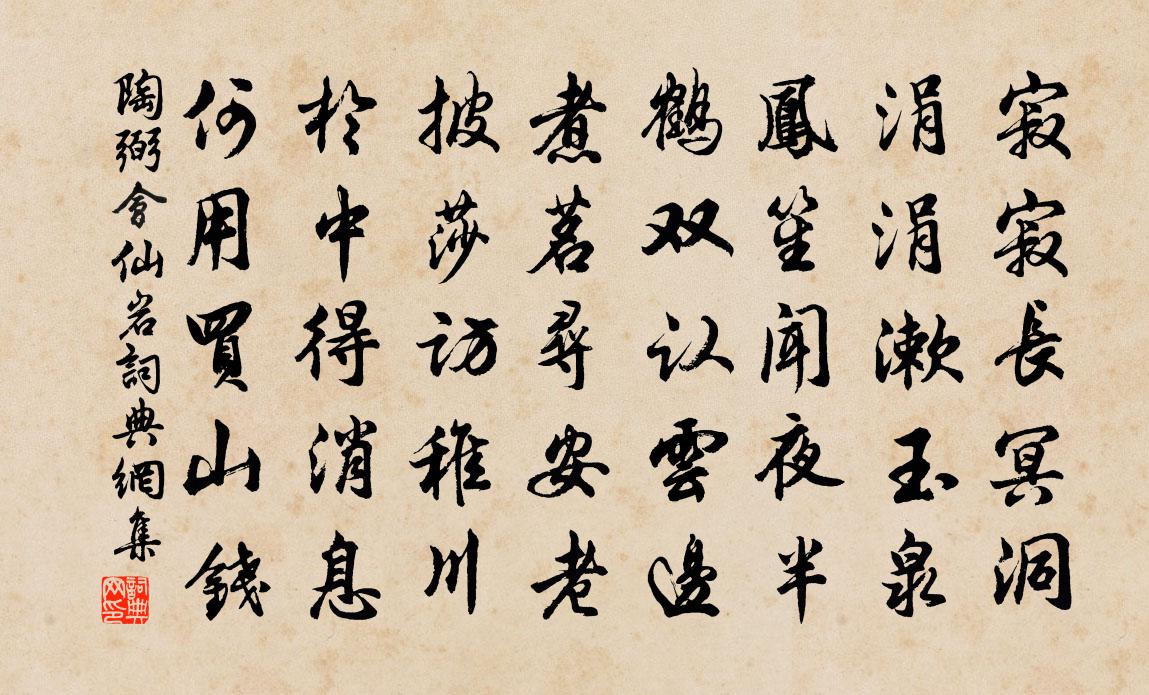 寂寂長冥洞
涓涓漱玉泉
鳳笙聞夜半
鶴双认雲邊
煮茗尋安老
披莎訪稚川
於中得消息
何用買山錢
陶弼會仙岩詞典網集
詞典网印